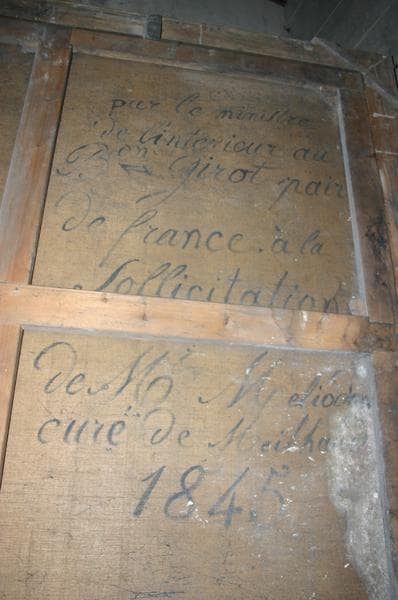 par le ministre
de l'interieur au
Bon Girot pair
de france. à la
Sollicitation
de Mr
curé de Meilhaud
1845